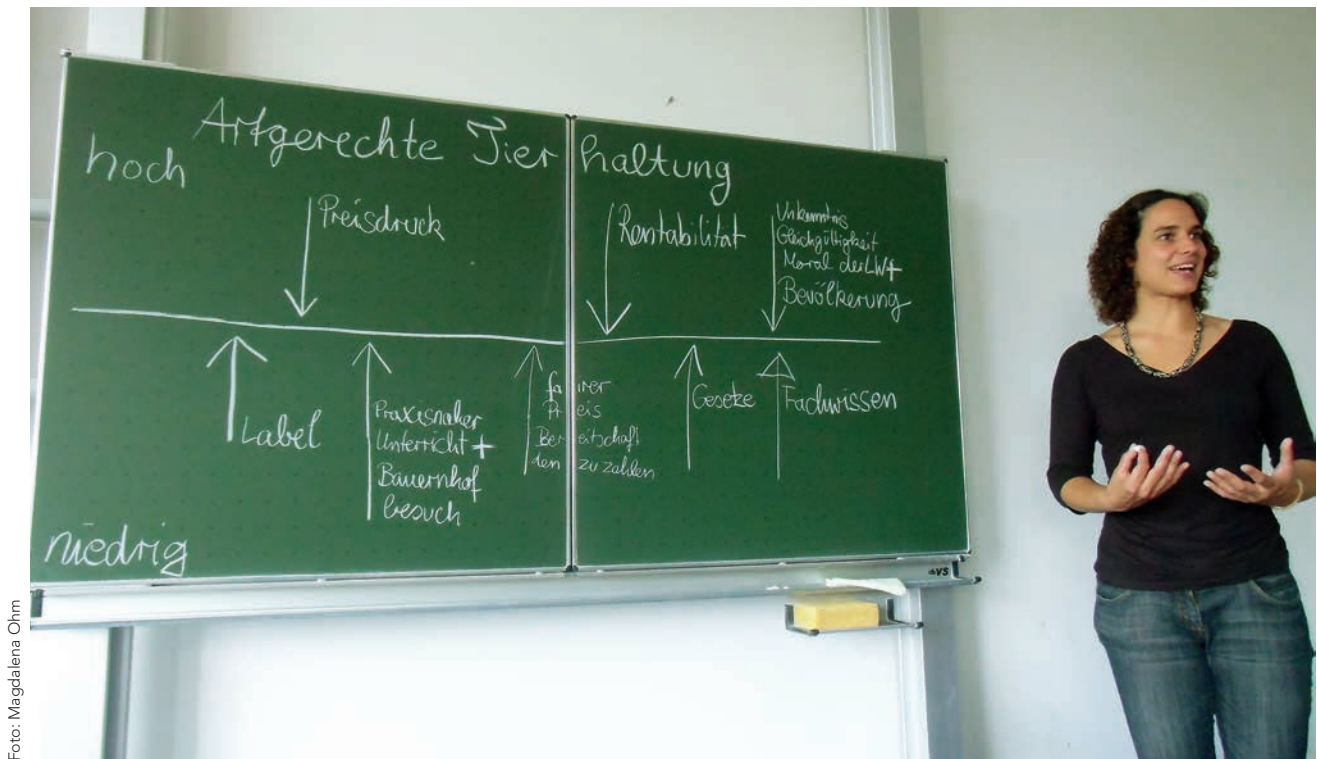 Artgerechte Tierhaltung
hoch
Preisdruck
Rentabilität
Unkenntnis
Gleichgültigkeit
Moral der LW+
Bevölkerung
Label
Praxisnaher
Unterricht +
Bauernhof
besuch
fairer
Preis
Bereitschaft
den zu zahlen
Gesetze
Fachwissen
niedrig
VS
Foto: Magdalena Ohm